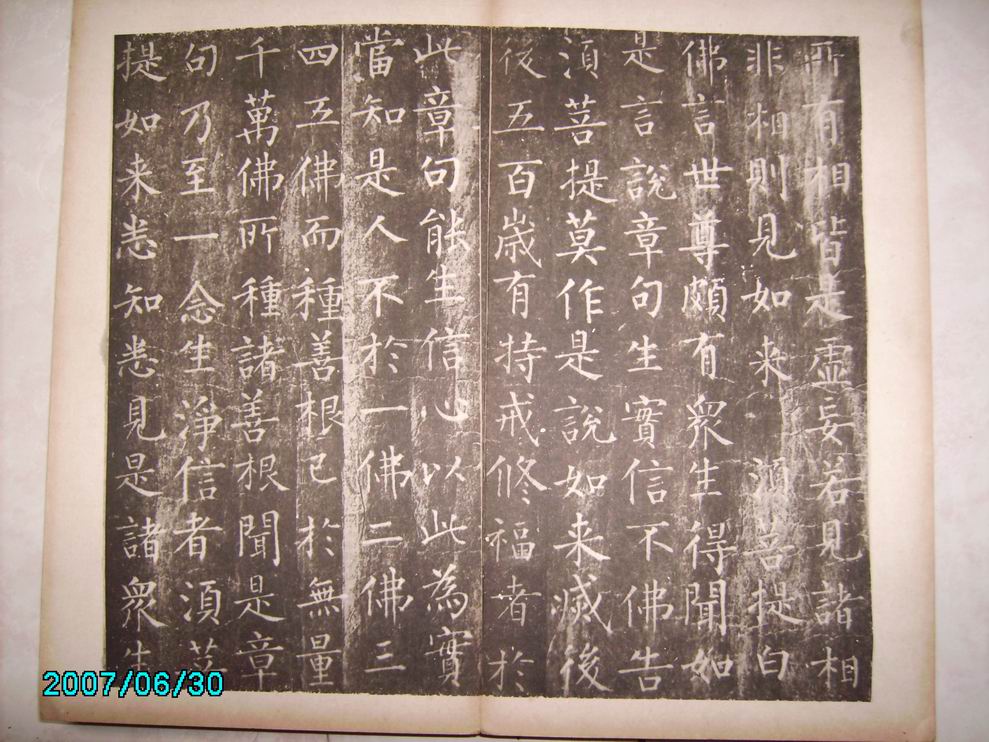 所有相皆是虛妄若見諸相
非相則見如来須菩提白
佛言世尊頗有衆生得聞如
是言說章句生實信不佛告
須菩提莫作是說如来滅後
後五百歲有持戒修福者於
此章句能生信心以此為實
當知是人不於一佛二佛三
四五佛而種善根已於無量
千萬佛所種諸善根聞是章
句乃至一念生淨信者須菩
提如来悉知悉見是諸衆生
2007/06/30